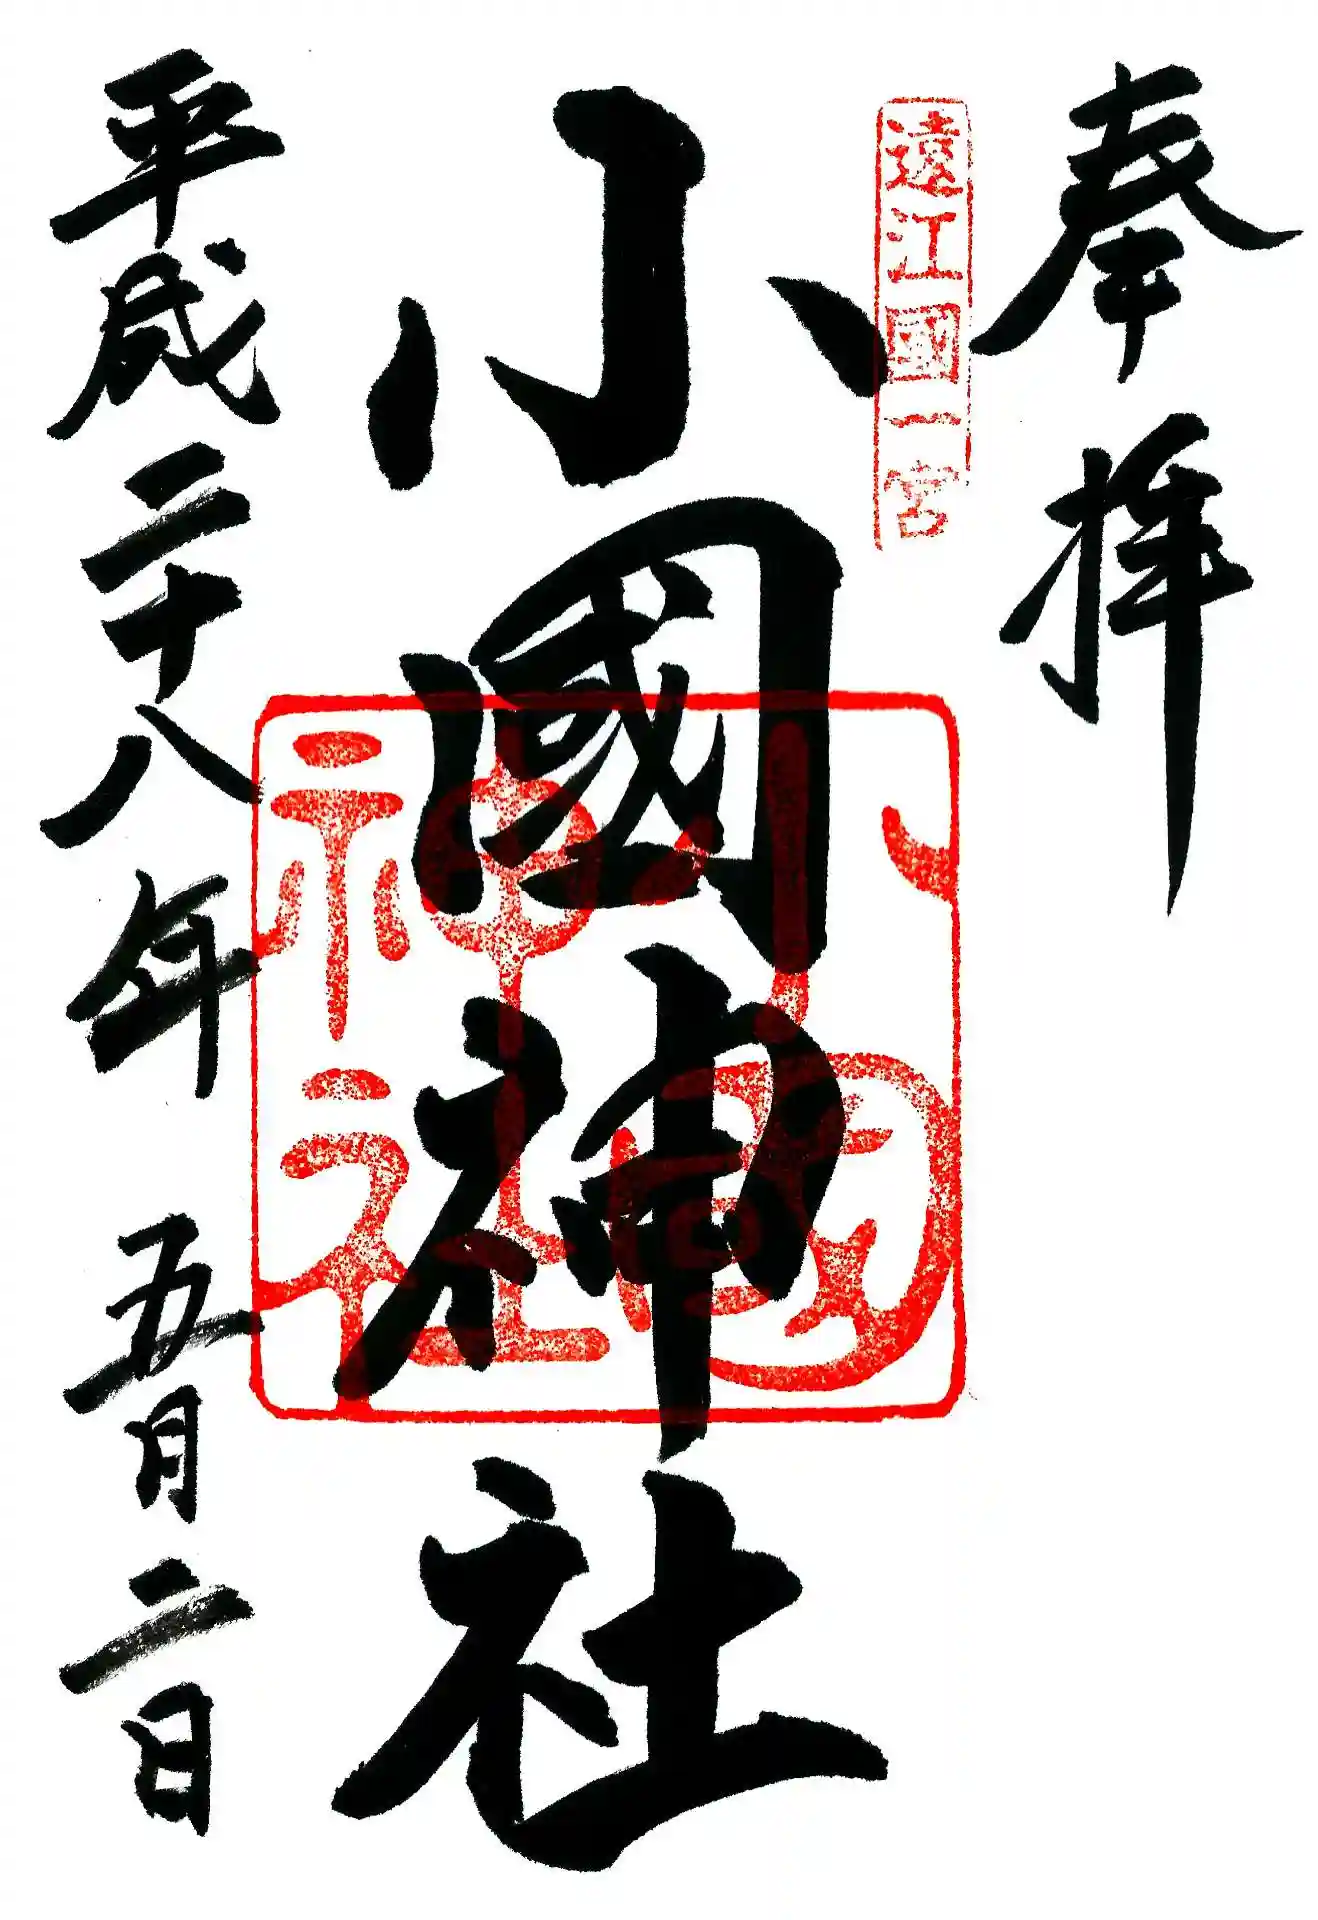 奉拝
遠江國一宮
小國神社
小國
神社
平成二十八年 五月二日